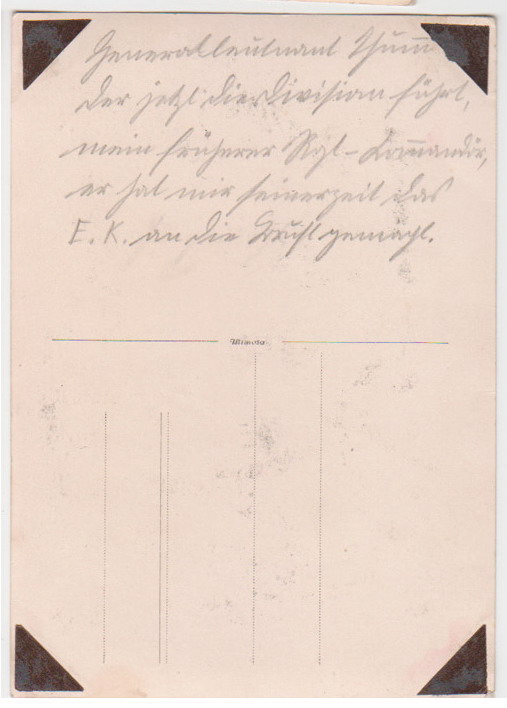 Generalleutnant Thumm
der jetzt die Division führt,
mein früherer Rgt-Kommandör,
er hat mir seinerzeit das
E. K. an die Brust gemacht.
Mimosa